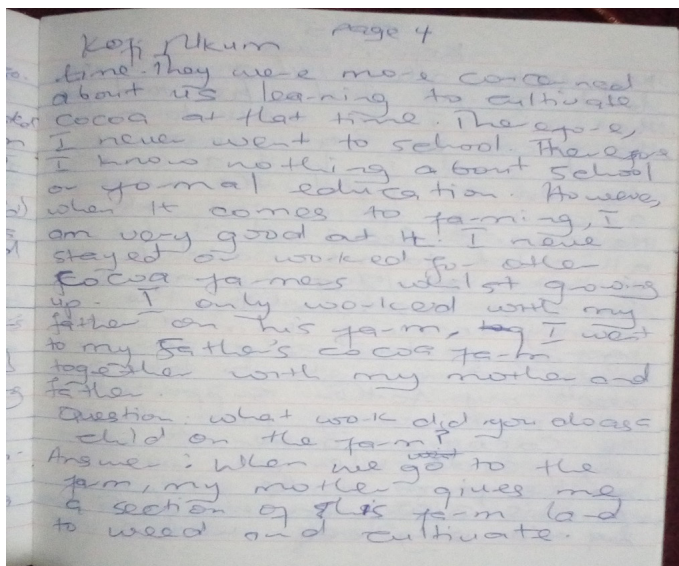 Page 4
Kofi Nkum
time. They were more concerned
about us learning to cultivate
cocoa at that time. Therefore,
I never went to school. Therefore
I know nothing about school
or formal education. However,
when it comes to farming, I
am very good at it. I never
stayed or worked for other
cocoa farmers whilst growing
up. I only worked with my
father on his farm, I went
to my father's cocoa farm
together with my mother and
father.
Question: what work did you do as a
child on the farm?
Answer: When we go to the
farm, my mother gives me
a section of this farm land
to weed and cultivate.